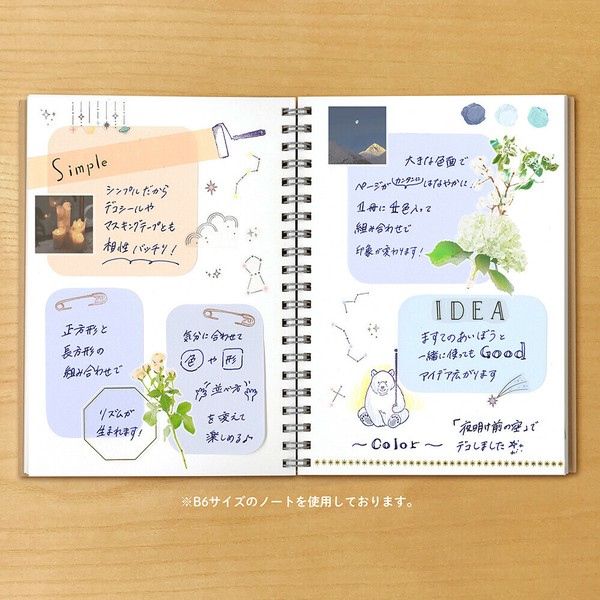 Simple
シンプルだから
デコシールや
マスキングテープとも
相性バッチリ!
正方形と
長方形の
組み合わせで
リズムが
生まれます!
気分に合わせて
色や形
並べ方
を変えて
楽しめる♪
大きな色面で
ページがカンタンにはなやかに!
1冊に 4色入って
組み合わせで
印象が変わります!
IDEA
ますてのあいぼうと
一緒に使っても Good
アイデア広がります
~Color~
「夜明け前の空」で
デコしました
※B6サイズのノートを使用しております。